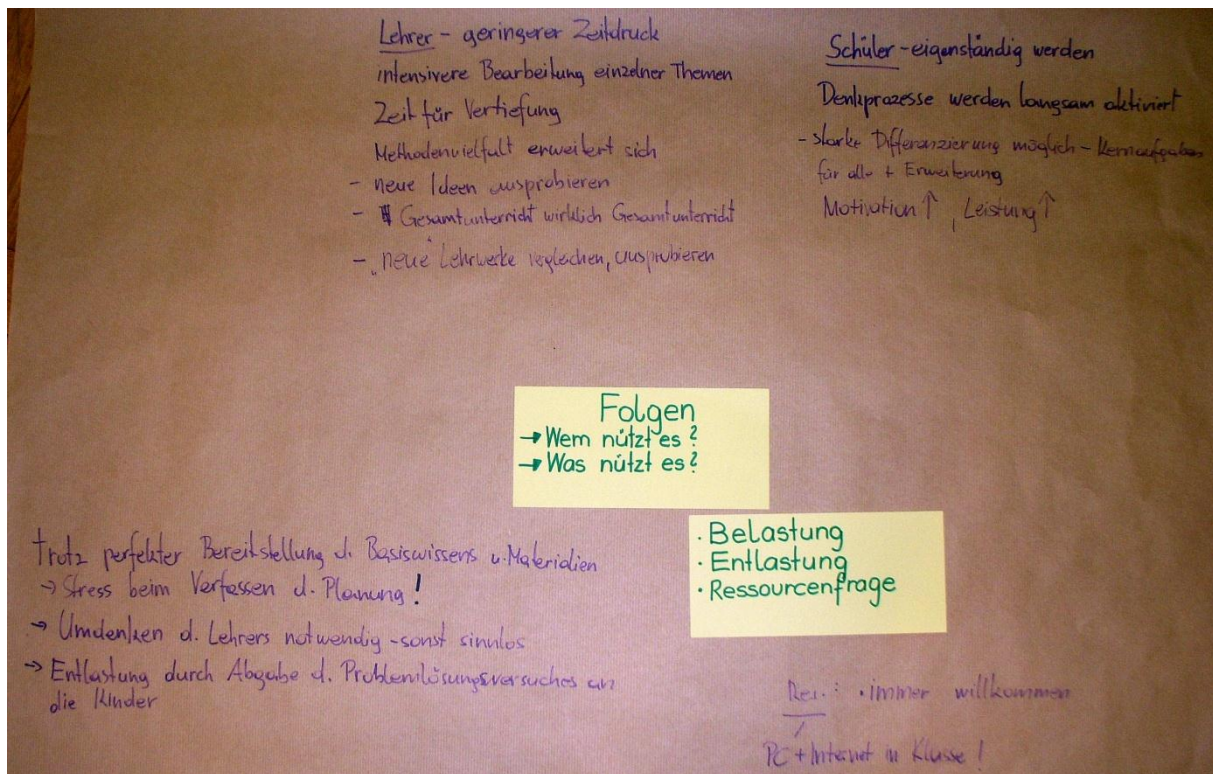 Lehrer - geringerer Zeitdruck
intensivere Bearbeitung einzelner Themen
Zeit für Vertiefung
Methodenvielfalt erweitert sich
- neue Ideen ausprobieren
- Gesamtunterricht wirklich Gesamtunterricht
- "neue" Lehrwerke vegleichen, ausprobieren
Schüler - eigenständig werden
Denkprozesse werden langsam aktiviert
- starke Differenzierung möglich - Kernaufgaben
für alle + Erweiterung
Motivation ↑, Leistung ↑
Folgen
→ Wem nützt es?
→ Was nützt es?
· Belastung
· Entlastung
· Ressourcenfrage
Trotz perfekter Bereitstellung d. Basiswissens u. Materialien
→ Stress beim Verfassen d. Planung!
→ Umdenken d. Lehrers notwendig - sonst sinnlos
→ Entlastung durch Abgabe d. Problemlösungsversuches an
die Kinder
Res.: · immer willkommen
PC + Internet in Klasse!